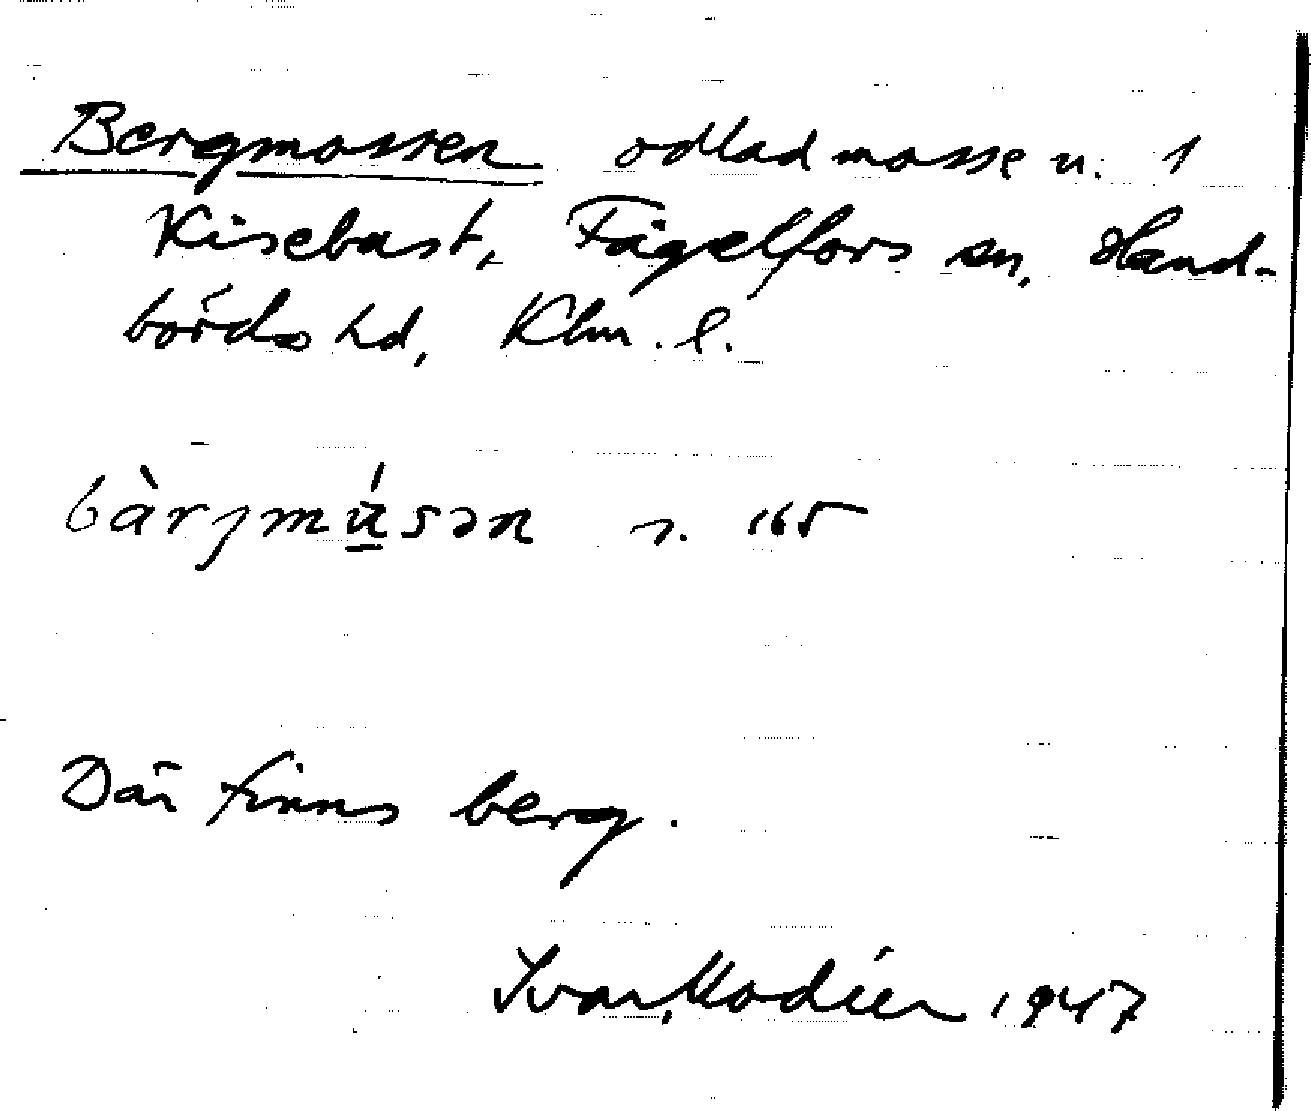 Bergmossen odlad mosse u. 1
Kisebast, Fågelfors sn, Hand-
börds hd, Klm. l.
bàrjmúsən s. 165
Där finns berg.
Ivar Modéer 1947